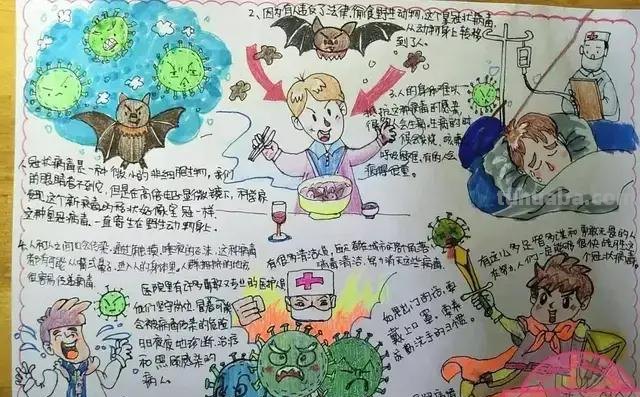 2、因为有人违反了法律,偷食野生动物,这个皇冠状病毒
从动物身上转移
到了人。
1、冠状病毒是一种微小的非细胞生物,我们
的眼睛看不到它,但是在高倍电子显微镜下,科学家
发现这个新病毒的形状好像皇冠一样,
这种皇冠病毒一直寄生在野生动物身上。
3、人的身体难以
抵抗这种病毒的感染
很多人会生病,生病的时
候会发烧、咳嗽
呼吸困难,有的人会
病得很重。
tuhuaba.com
4、人和人之间的会传染,通过触摸、唾液的方法,这种病毒
都有可能从
进入人的身体里,人群拥挤的地方
很容易传播病毒
医院里有许多勇敢的医护人员
他们坚守岗位,冒着可能
会被病毒伤害的危险
日日夜夜地诊断、治疗
和照顾感染的
病人。
有很多清洁人员,每天都在城市的各个角落
喷毒清洁,努力消灭这些病毒。
如果出门的话,要
戴上口罩,要养
成勤洗手的习惯。
有这么多足智多谋和勇敢无畏的人
在努力,人们一定能够很快战胜这
个冠状病毒